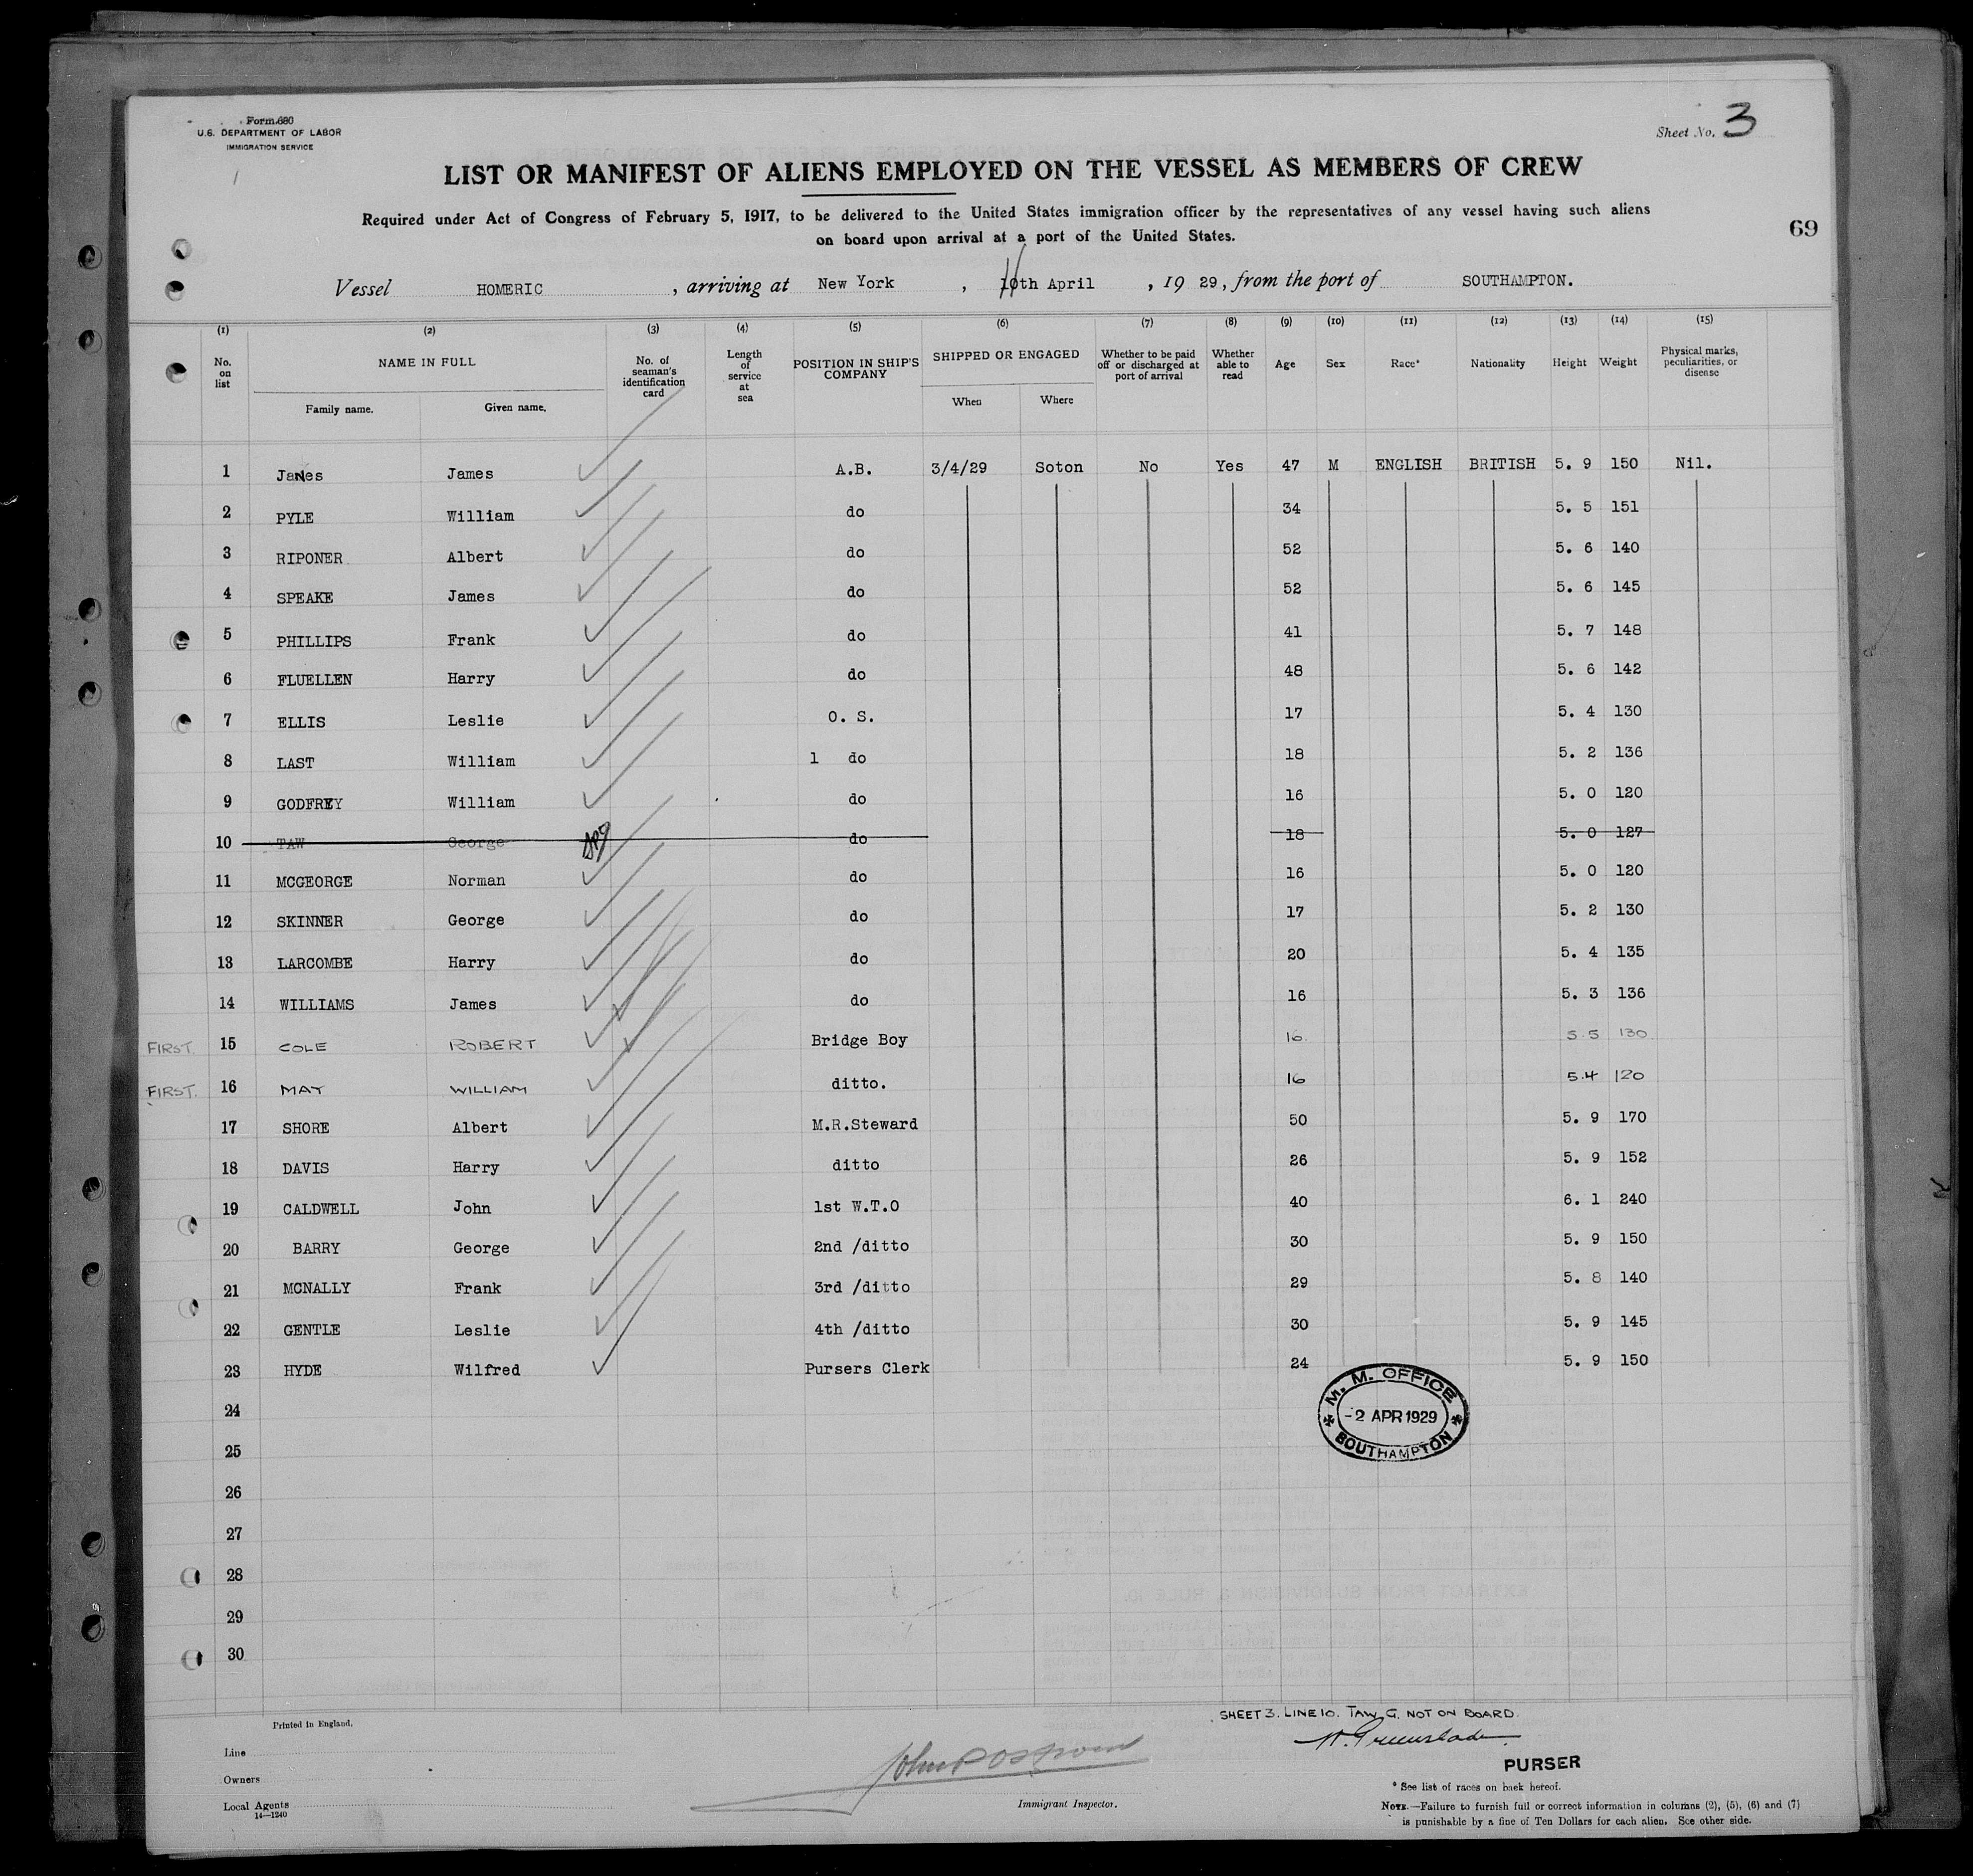 Form 680
U.S. DEPARTMENT OF LABOR
IMMIGRATION SERVICE
Sheet No. 3
LIST OR MANIFEST OF ALIENS EMPLOYED ON THE VESSEL AS MEMBERS OF CREW
Required under Act of Congress of February 5, 1917, to be delivered to the United States immigration officer by the representatives of any vessel having such aliens
on board upon arrival at a port of the United States.
69
Vessel HOMERIC, arriving at New York, 10th April, 19 29, from the port of SOUTHAMPTON.
(1) (2) (3) (4) (5) (6) (7) (8) (9) (10) (11) (12) (13) (14) (15)
No. on list NAME IN FULL Family name. Given name. No. of seaman's identification card Length of service at sea POSITION IN SHIP'S COMPANY SHIPPED OR ENGAGED When Where Whether to be paid off or discharged at port of arrival Whether able to read Age Sex Race* Nationality Height Weight Physical marks, peculiarities, or disease
1 JaNes James A.B. 3/4/29 Soton No Yes 47 M ENGLISH BRITISH 5. 9 150 Nil.
2 PYLE William do 34 5. 5 151
3 RIPONER Albert do 52 5. 6 140
4 SPEAKE James do 52 5. 6 145
5 PHILLIPS Frank do 41 5. 7 148
6 FLUELLEN Harry do 48 5. 6 142
7 ELLIS Leslie O. S. 17 5. 4 130
8 LAST William 1 do 18 5. 2 136
9 GODFREY William do 16 5. 0 120
10 TAW George do 18 5. 0 127
11 MCGEORGE Norman do 16 5. 0 120
12 SKINNER George do 17 5. 2 130
13 LARCOMBE Harry do 20 5. 4 135
14 WILLIAMS James do 16 5. 3 136
FIRST. 15 COLE ROBERT Bridge Boy 16. 5.5 130.
FIRST. 16 MAY WILLIAM ditto. 16 5.4 120
17 SHORE Albert M.R.Steward 50 5. 9 170
18 DAVIS Harry ditto 26 5. 9 152
19 CALDWELL John 1st W.T.O 40 6. 1 240
20 BARRY George 2nd /ditto 30 5. 9 150
21 MCNALLY Frank 3rd /ditto 29 5. 8 140
22 GENTLE Leslie 4th /ditto 30 5. 9 145
23 HYDE Wilfred Pursers Clerk 24 5. 9 150
24
25
26
27
28
29
30
M. M. OFFICE
-2 APR 1929
SOUTHAMPTON
SHEET 3. LINE 10. TAW G. NOT ON BOARD.
Printed in England.
Line
Owners
Local Agents
14—1240
Immigrant Inspector.
PURSER
* See list of races on back hereof.
NOTE.—Failure to furnish full or correct information in columns (2), (5), (6) and (7)
is punishable by a fine of Ten Dollars for each alien. See other side.